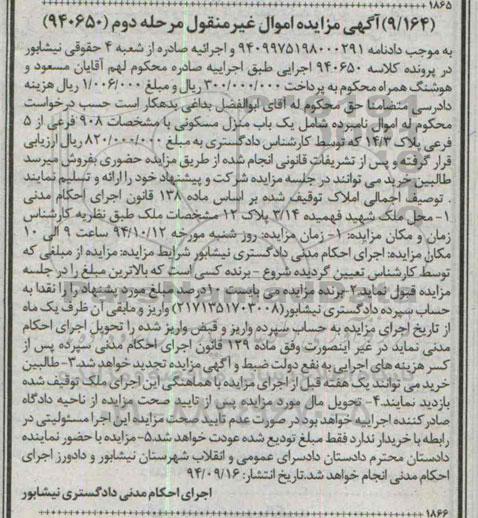 ۱۸۶۵
(۹/۱۶۴) آگهی مزایده اموال غیرمنقول مرحله دوم (۹۴۰۶۵۰)
به موجب دادنامه ۹۴۰۹۹۷۵۱۹۸۰۰۰۲۹۱ و اجرائیه صادره از شعبه ۴ حقوقی نیشابور
در پرونده کلاسه ۹۴۰۶۵۰ اجرایی طبق اجراییه صادره محکوم لهم آقایان مسعود و
هوشنگ همراه محکوم به پرداخت ۳۰۰/۰۰۰/۰۰۰ ریال و مبلغ ۱/۰۰۶/۰۰۰ ریال هزینه
دادرسی متضامنا حق محکوم له آقای ابوالفضل بداغی بدهکار است حسب درخواست
محکوم له اموال نامبرده شامل یک باب منزل مسکونی با مشخصات ۹۰۸ فرعی از ۵
فرعی پلاک ۱۴/۳ که توسط کارشناس دادگستری به مبلغ ۸۲۰/۰۰۰/۰۰۰ ریال ارزیابی
قرار گرفته و پس از تشریفات قانونی انجام شده از طریق مزایده حضوری بفروش میرسد
طالبین خرید می توانند در جلسه مزایده شرکت و پیشنهاد خود را ارائه و تسلیم نمایند
. توصیف اجمالی املاک توقیف شده بر اساس ماده ۱۳۸ قانون اجرای احکام مدنی
۱- محل ملک شهید فهمیده ۳/۱۴ پلاک ۱۲ مشخصات ملک طبق نظریه کارشناس
زمان و مکان مزایده: ۱- زمان مزایده: روز شنبه مورخه ۹۴/۱۰/۱۲ ساعت ۹ الی ۱۰
مکان مزایده: اجرای احکام مدنی دادگستری نیشابور شرایط مزایده: مزایده از مبلغی که
توسط کارشناس تعیین گردیده شروع - برنده کسی است که بالاترین مبلغ را در جلسه
مزایده قبول نماید ۲- برنده مزایده می بایست ۱۰ درصد مبلغ مورد پیشنهاد را نقدا به
حساب سپرده دادگستری نیشابور (۲۱۷۱۳۵۱۷۰۳۰۰۸) واریز و مابقی آن ظرف یک ماه
از تاریخ اجرای مزایده به حساب سپرده واریز و قبض واریز شده را تحویل اجرای احکام
مدنی نماید در غیر اینصورت وفق ماده ۱۲۹ قانون اجرای احکام مدنی سپرده پس از
کسر هزینه های اجرایی به نفع دولت ضبط و آگهی مزایده تجدید خواهد شد. ۳- طالبین
خرید می توانند یک هفته قبل از اجرای مزایده با هماهنگی این اجرای ملک توقیف شده
بازدید نمایند. ۴- تحویل مال مورد مزایده پس از تایید صحت مزایده از ناحیه دادگاه
صادر کننده اجراییه خواهد بود در صورت عدم تایید صحت مزایده این اجرا مسئولیتی در
رابطه با خریدار ندارد فقط مبلغ تودیع شده عودت خواهد شد. ۵- مزایده با حضور نماینده
دادستان محترم دادستان دادسرای عمومی و انقلاب شهرستان نیشابور و دادورز اجرای
احکام مدنی انجام خواهد شد. تاریخ انتشار: ۹۴/۰۹/۱۶
اجرای احکام مدنی دادگستری نیشابور
۱۸۶۶